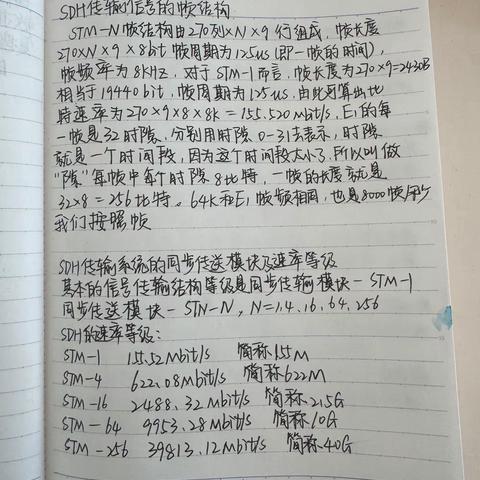 SDH传输信号的帧结构
STM-N帧结构由270列×N×9行组成，帧长度
270×N×9×8bit 帧周期为125us(即一帧的时间)，
帧频率为8KHZ，对于STM-1而言，帧长度为270×9=2430B
相当于19440bit，帧周期为125us，由此可算出比
特速率为270×9×8×8K=155.520Mb/s，E1的每
一帧是32时隙，分别用时隙0-31去表示，时隙
就是一个时间段，因为这个时间段太小了，所以叫做
"隙"每帧中每个时隙8比特，一帧的长度就是
32×8=256比特。64K和E1帧频相同，也是8000帧/
我们按照帧
SDH传输系统的同步传送模块及速率等级
基本的信号传输结构等级是同步传输模块-STM-1
同步传送模块-STN-N，N=1.4.16.64.256
SDH的速率等级：
STM-1 155.52Mbit/s 简称155M
STM-4 622.08Mbit/s 简称622M
STM-16 2488.32Mbit/s 简称2.5G
STM-64 9953.28Mbit/s 简称10G
STM-256 39813.12Mbit/s 简称40G